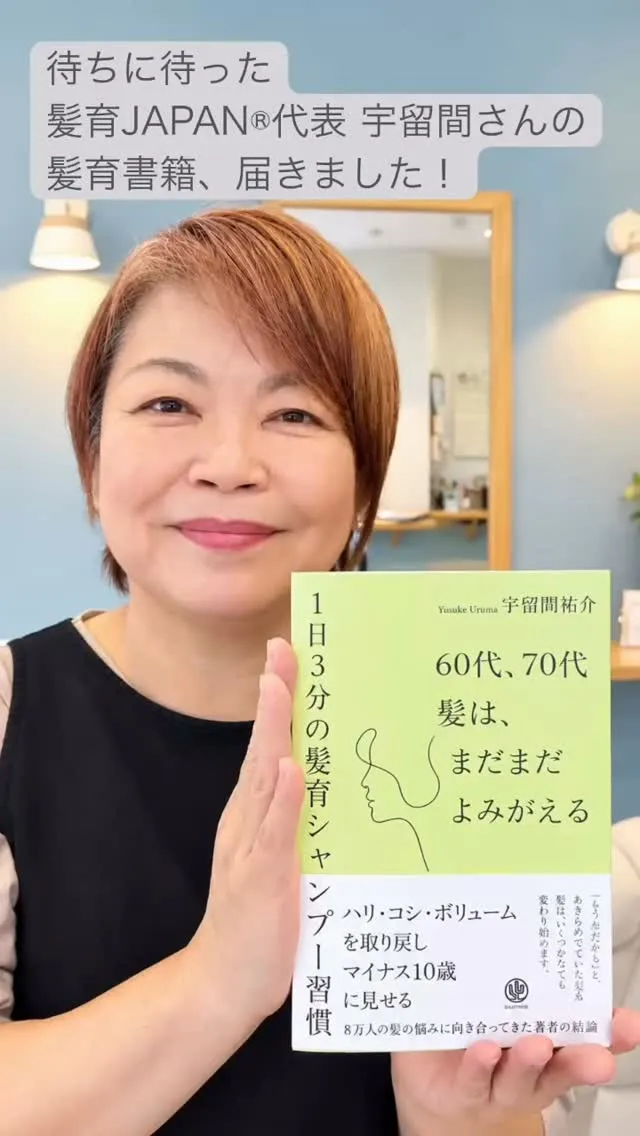 待ちに待った
髪育JAPAN®代表 宇留間さんの
髪育書籍、届きました！
Yusuke Uruma 宇留間祐介
1日3分の髪育シャンプー習慣
60代、70代
髪は、
まだまだ
よみがえる
ハリ・コシ・ボリューム
を取り戻し
マイナス10歳
に見せる
「もう年だから」と、
あきらめていた髪。
髪は、いくつからでも
変わり始めます。
8万人の髪の悩みに向き合ってきた著者の結論